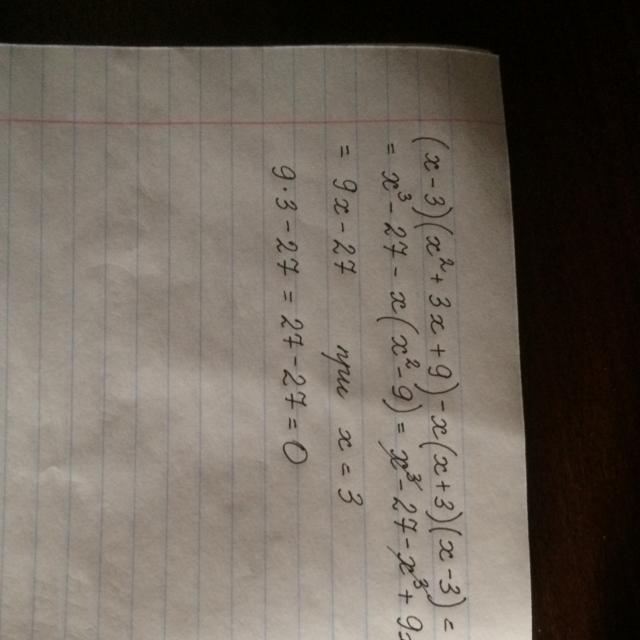 (x-3)(x²+3x+9)-x(x+3)(x-3)=
= x³-27-x(x²-9)= x³-27-x³+9x
= 9x-27 при x=3
9·3-27=27-27=0